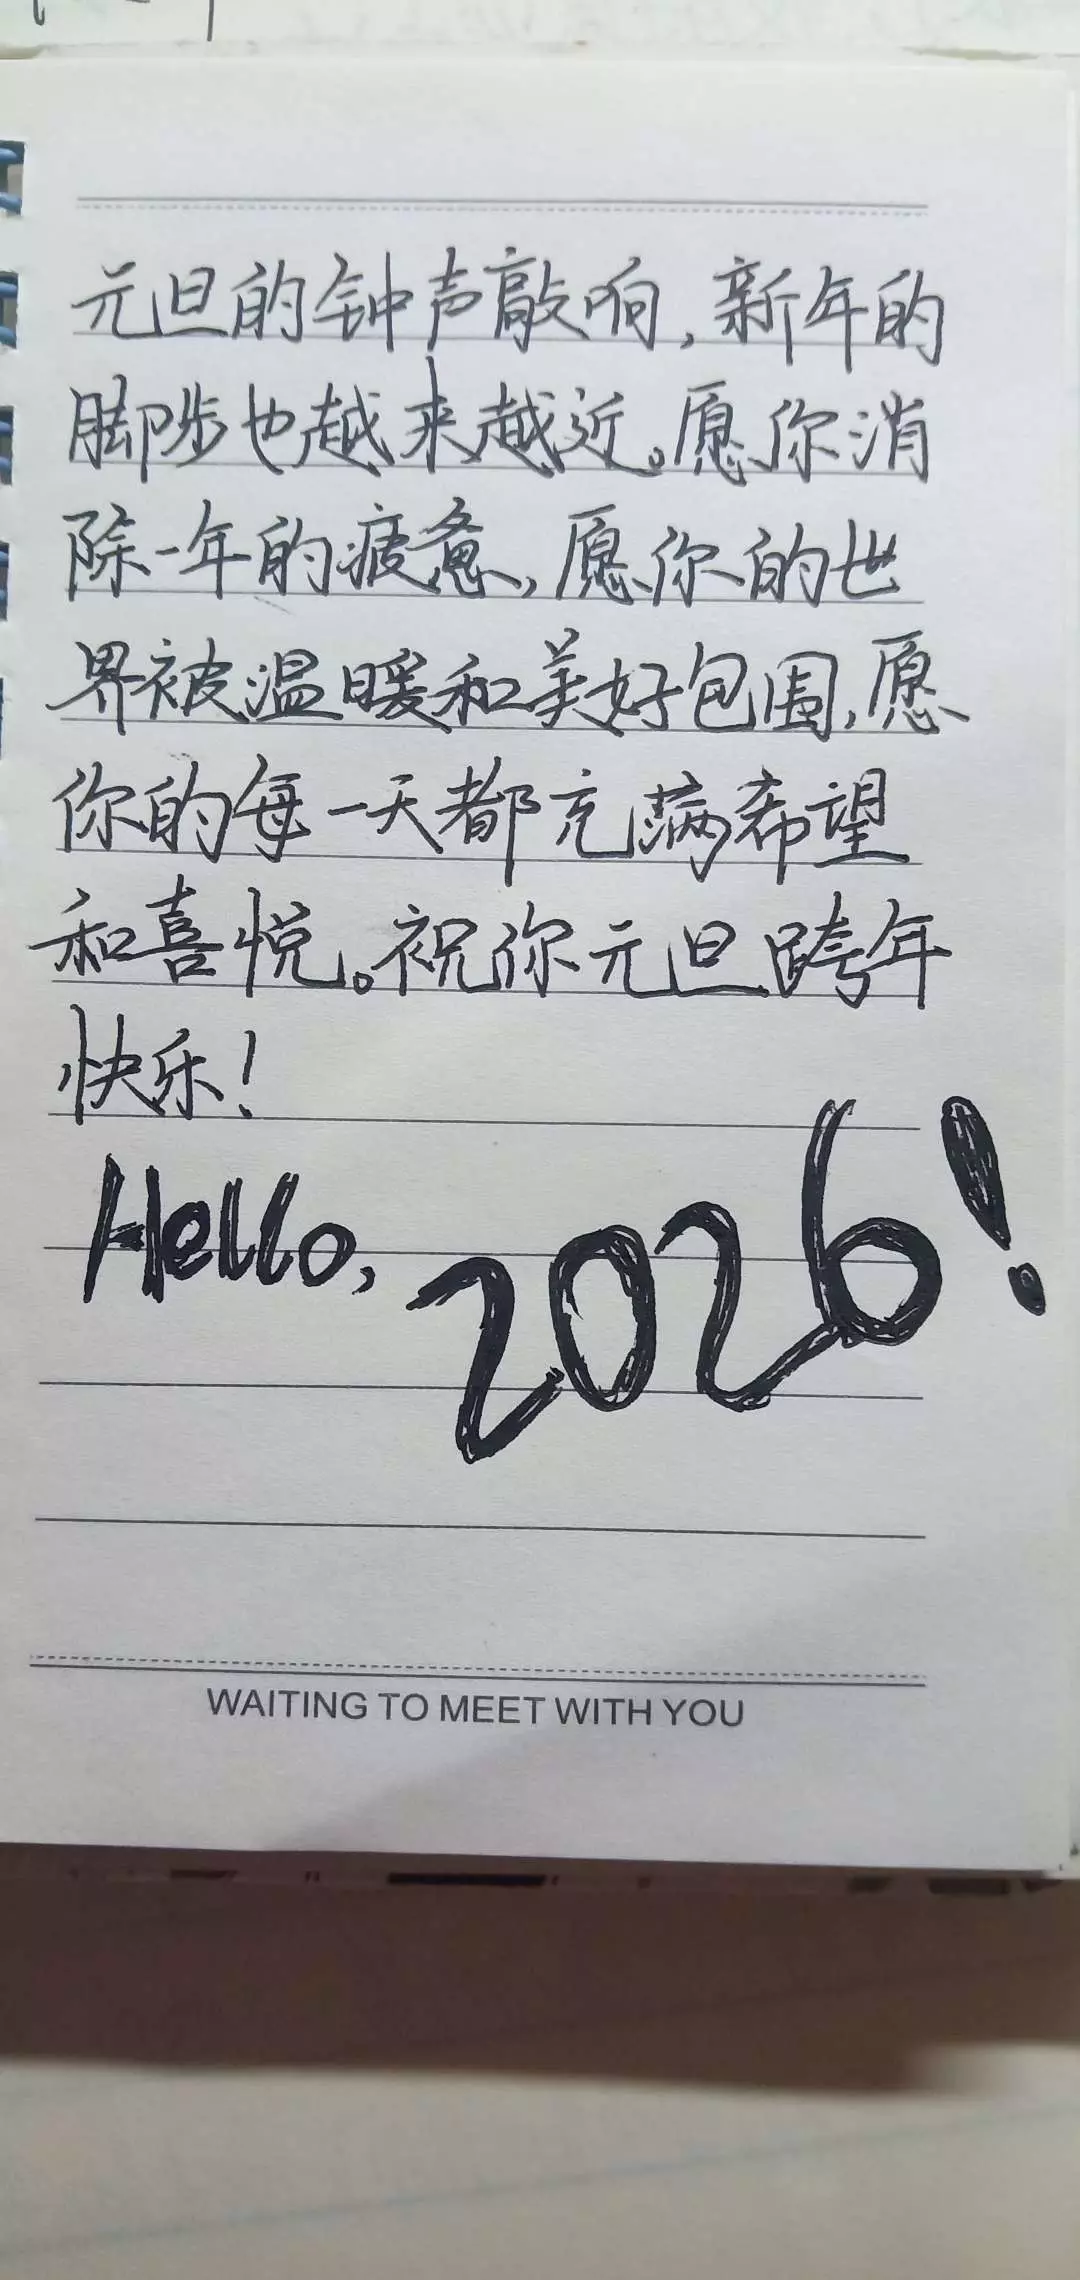 元旦的钟声敲响，新年的
脚步也越来越近。愿你消
除一年的疲惫，愿你的世
界被温暖和美好包围，愿
你的每一天都充满希望
和喜悦。祝你元旦跨年
快乐！
Hello, 2026!
WAITING TO MEET WITH YOU